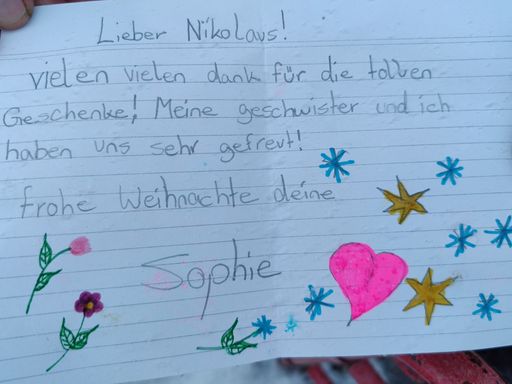 Lieber Nikolaus!
vielen vielen dank für die tollen
Geschenke! Meine geschwister und ich
haben uns sehr gefreut!
frohe Weihnachte deine
Sophie